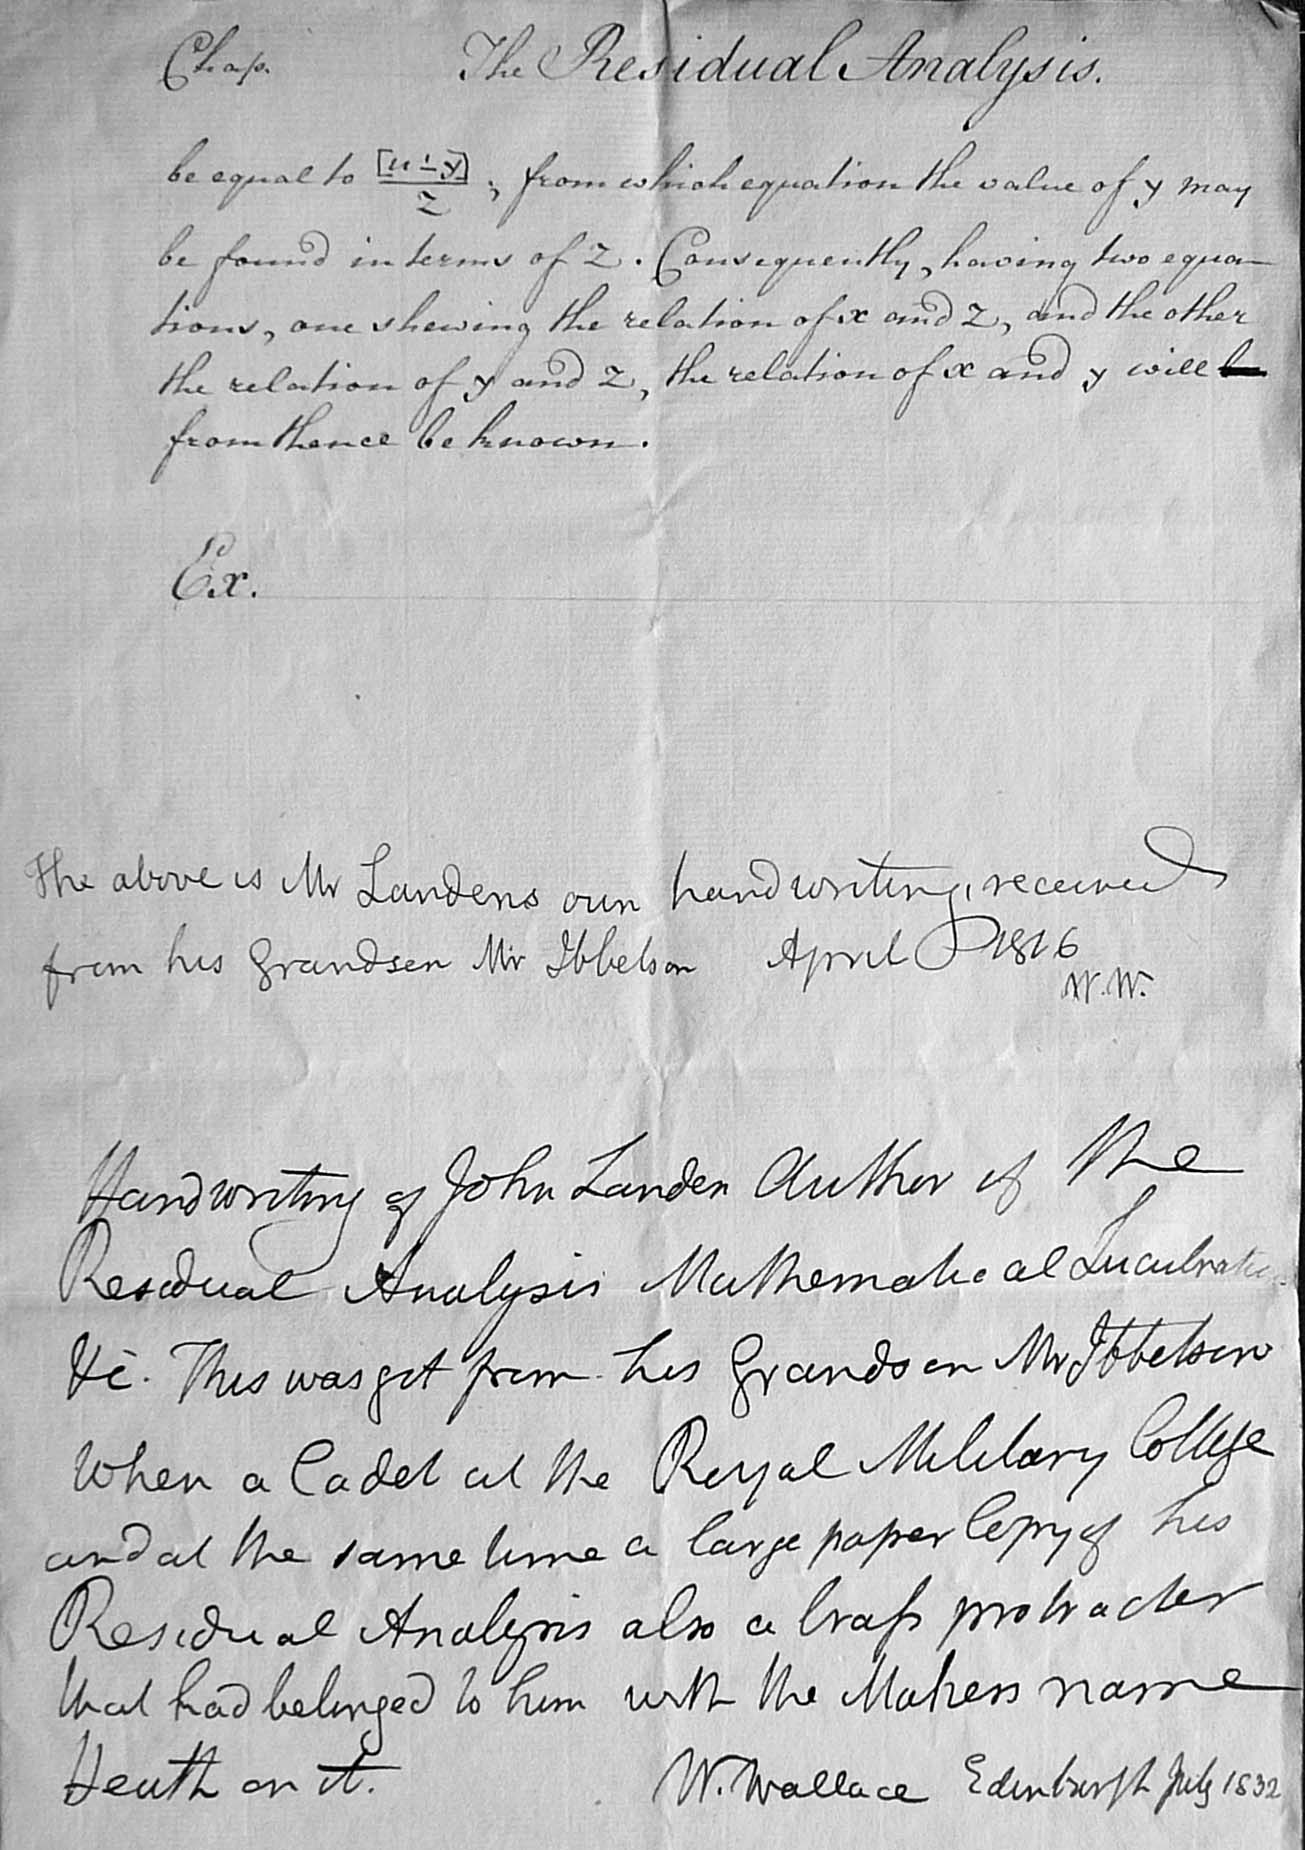 Chap. The Residual Analysis.
be equal to [u ∸ y]/z ; from which equation the value of y may
be found in terms of z. Consequently, having two equa-
tions, one shewing the relation of x and z, and the other
the relation of y and z, the relation of x and y will
from thence be known.
Ex.
The above is Mr Landens own handwriting, received
from his Grandson Mr Ibbetson April 1816
W.W.
Handwriting of John Landen Author of the
Residual Analysis Mathematical Lucubratio
&c. This was got from his Grandson Mr Ibbetson
when a Cadet at the Royal Military College
and at the same time a large paper Copy of his
Residual Analysis also a brass protracter
that had belonged to him with the Makers name
Heath on it. W. Wallace Edinburgh July 1832